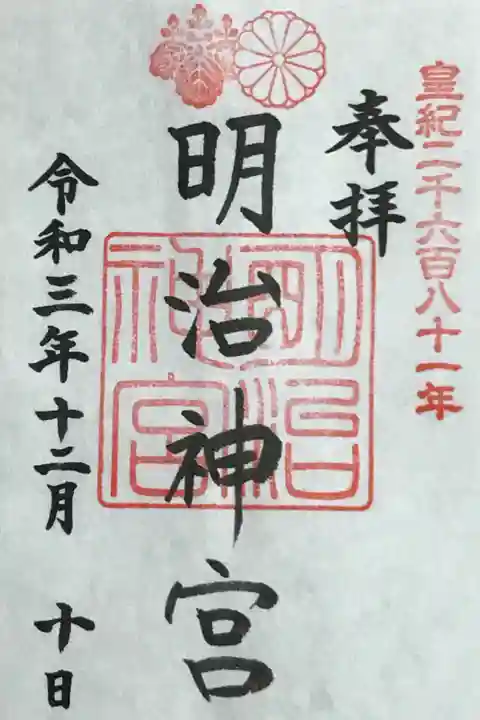 皇紀二千六百八十一年
奉拝
明治神宮
明治
神宮
令和三年十二月 十日